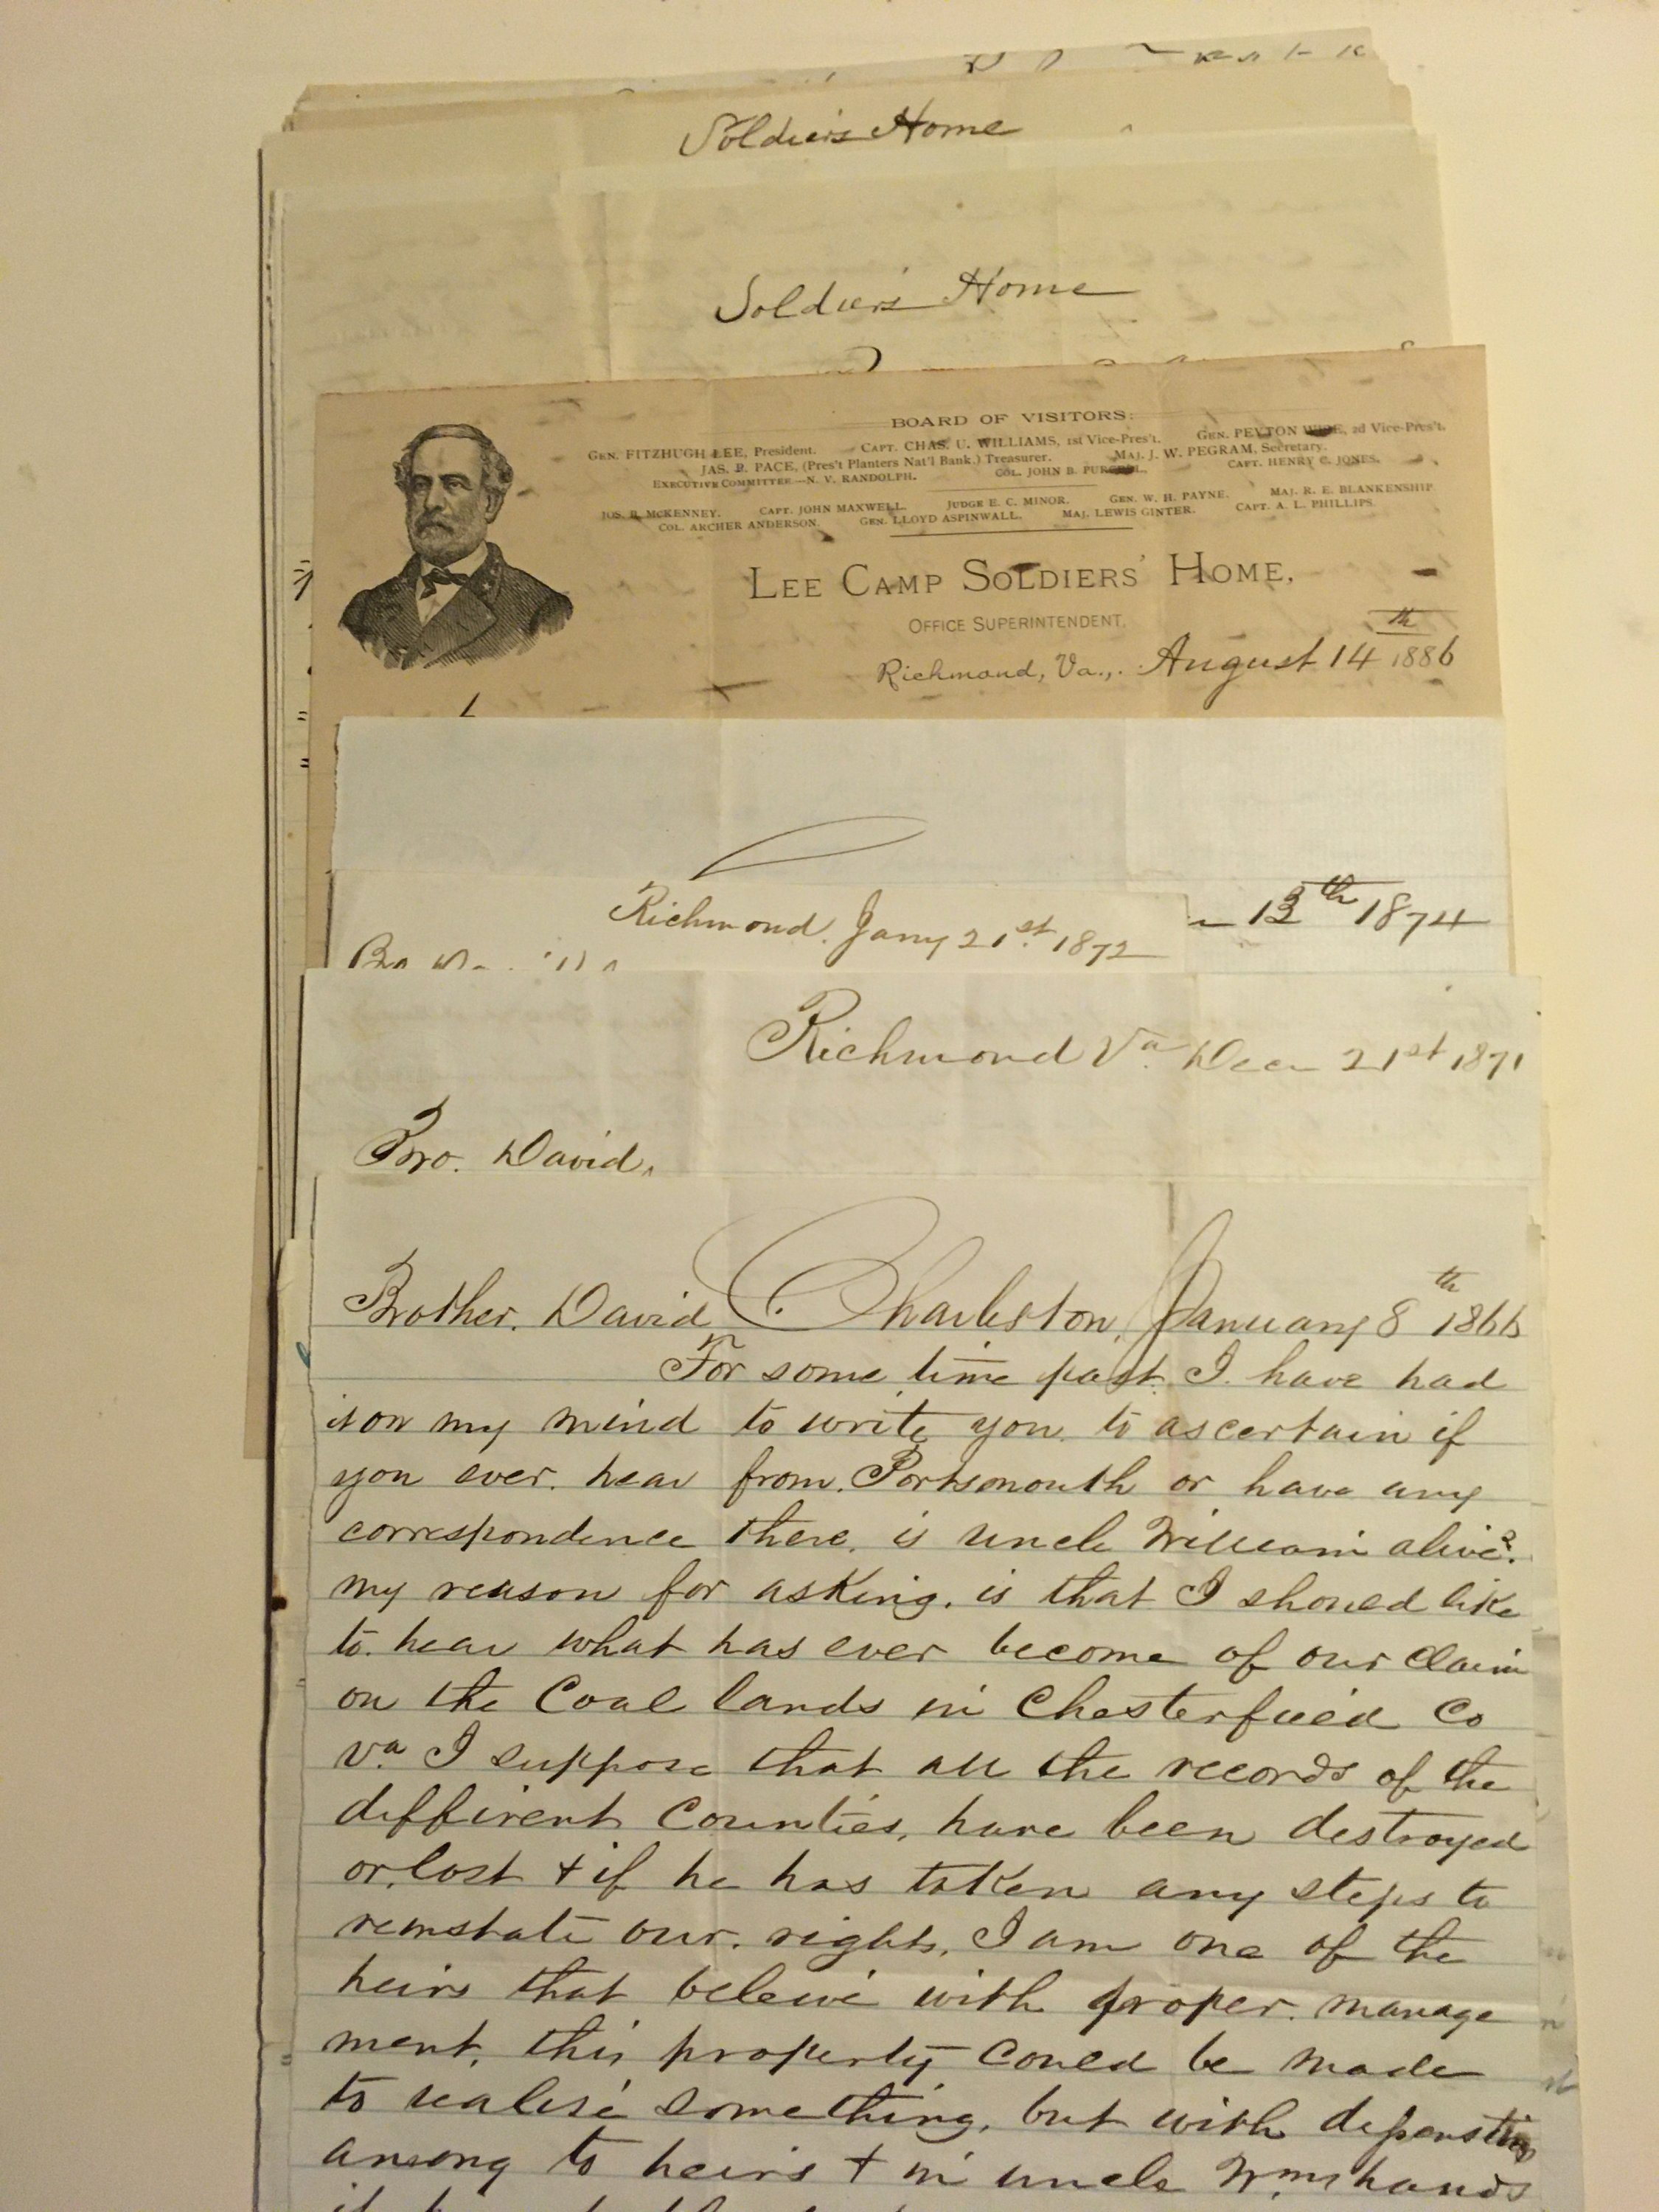 Soldiers Home
Soldiers Home
BOARD OF VISITORS:
GEN. FITZHUGH LEE, President. CAPT. CHAS. U. WILLIAMS, 1st Vice-Pres't. GEN. PEYTON WISE, 2d Vice-Pres't.
JAS. B. PACE, (Pres't Planters Nat'l Bank.) Treasurer. MAJ. J. W. PEGRAM, Secretary.
EXECUTIVE COMMITTEE—N. V. RANDOLPH. COL. JOHN B. PURCELL. CAPT. HENRY C. JONES.
JOS. R. McKENNEY. CAPT. JOHN MAXWELL. JUDGE E. C. MINOR. GEN. W. H. PAYNE. MAJ. R. E. BLANKENSHIP.
COL. ARCHER ANDERSON. GEN. LLOYD ASPINWALL. MAJ. LEWIS GINTER. CAPT. A. L. PHILLIPS.
LEE CAMP SOLDIERS' HOME,
OFFICE SUPERINTENDENT.
Richmond, Va., August 14th 1886
13th 1874
Richmond. Jany 21st. 1872
Richmond Va Decr 21st 1871
Bro. David,
Brother. David Charleston, January 8th 1866
For some time past. I have had
it on my mind to write you to ascertain if
you ever. hear from. Portsmouth or have any
correspondence there. is uncle William alive?
my reason for asking. is that I should like
to. hear what has ever become of our claim
on the Coal lands in Chesterfield Co
Va. I suppose that all the records of the
diffirent Counties, have been destroyed
or, lost + if he has taken any steps to
reinstate our. rights, I am one of the
heirs that beleive with proper. manage
ment, this property could be made
to realise something, but with
among to heirs + in uncle Wms hands